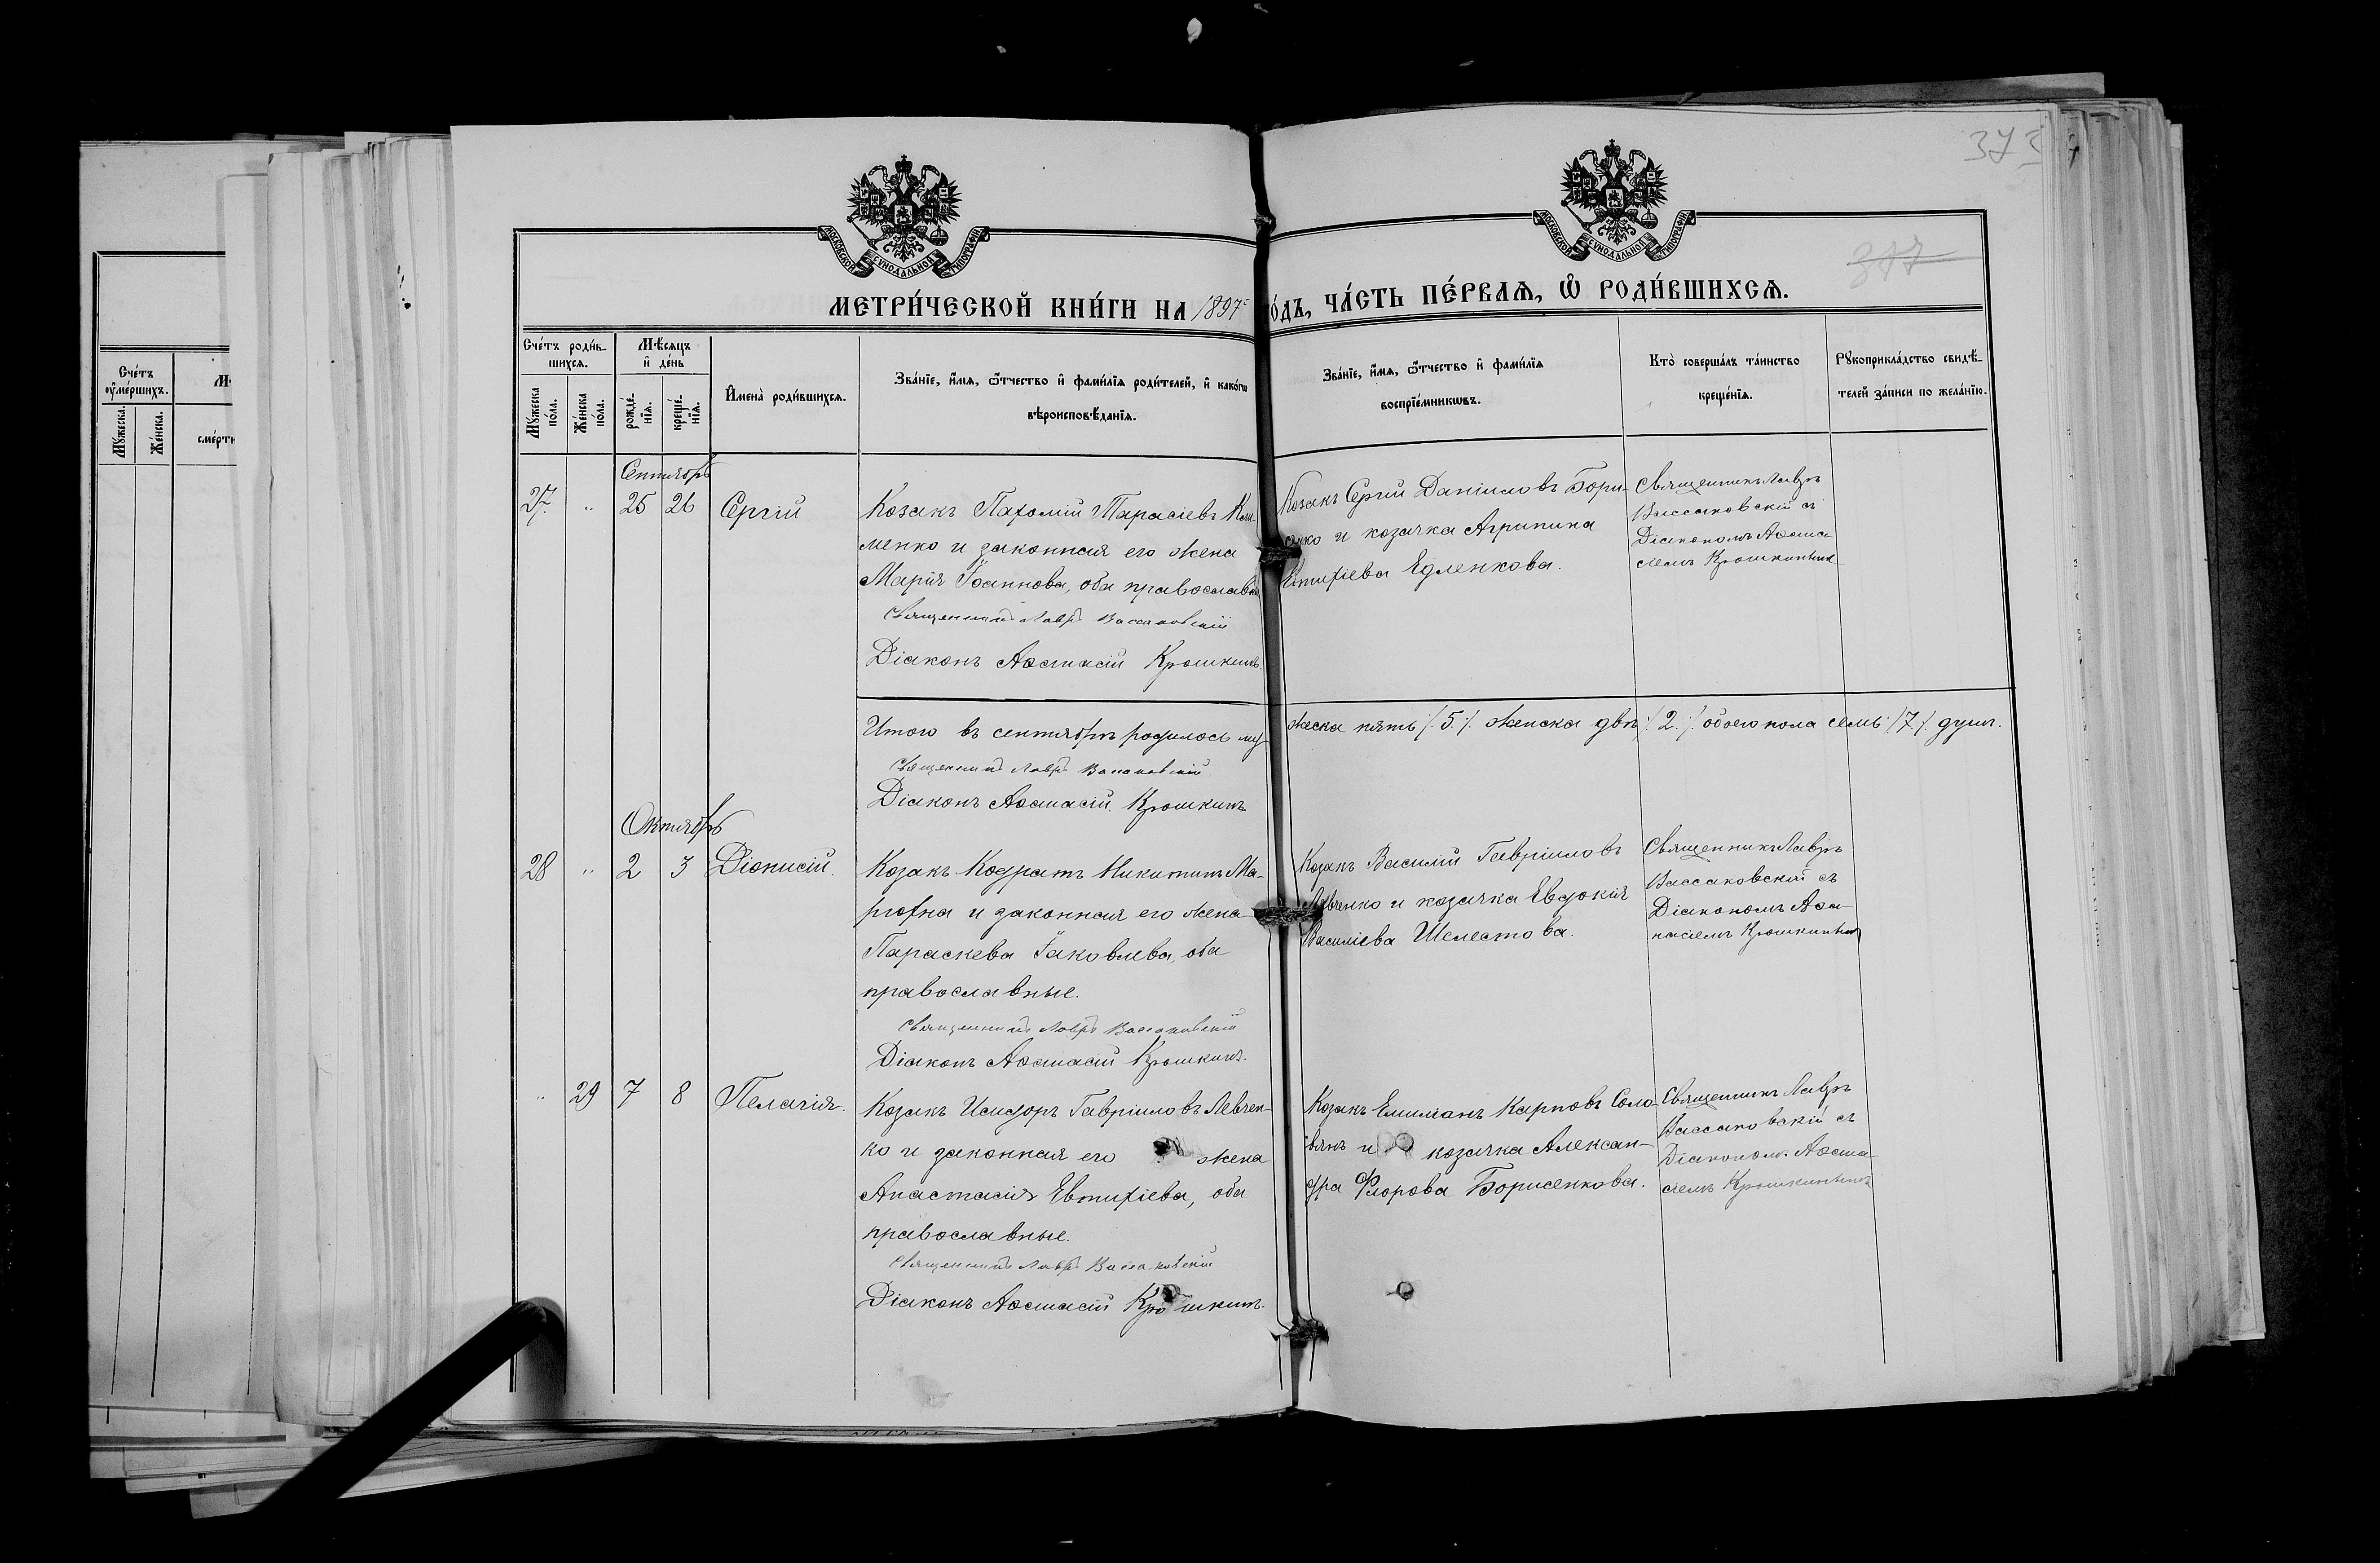 373
377
МОСКОВСКОЙ СѴНОДАЛЬНОЙ ТИПОГРАФІИ
МОСКОВСКОЙ СѴНОДАЛЬНОЙ ТИПОГРАФІИ
МЕТРИ́ЧЕСКОЙ КНИ́ГИ НА 1897 го́дъ, ЧА́СТЬ ПЕ́РВАЯ, Ѡ РОДИ́ВШИХСЯ.
Сче́тъ
ᲂумершихъ.
Мꙋжеска.
Же́нска.
сме́рти
Сче́тъ роди́в-
шихся.
Мꙋжеска
по́ла.
Же́нска
пола.
Мѣ́сяцъ
и҆ де́нь
рожде́-
нїя.
креще́-
нїя.
И҆мена̀ роди́вшихся.
Зва́нїе, и҆́мя, ѻ҆́тчество и҆ фами́лїя роди́телей, и҆ како́гѡ
вѣроисповѣ́данїя.
Зва́нїе, и҆́мя, ѻ҆́тчество и҆ фами́лїя
воспрїе́мникѡвъ.
Кто̀ соверша́лъ та́инство
креще́нїя.
Рꙋкоприкла́дство свидѣ́-
телей за́писи по жела́нїю.
Сентябрь
27. " 25 26 Сергій
Козакъ Пахомій Тарасіевъ Кли-
менко и законная его жена
Марія Іоаннова, оба православн
Священникъ Лавръ Вассаковскій
Діаконъ Аѳанасій Крошкинъ.
Козакъ Сергій Даніиловъ Бори-
енко и козачка Агрипина
Евтихіева Едленкова.
Священникъ Лавръ
Вассаковскій съ
Діакономъ Аѳана
сіемъ Крошкинымъ
Итого въ сентябрѣ родилось му-
жеска пять /.5./. женска двѣ /.2./. обоего пола семь /7/. душъ.
Священникъ Лавръ Вассаковскій
Діаконъ Аѳанасій Крошкинъ
Октябрь
28 " 2 3 Діонисій.
Козакъ Кодратъ Никитинъ Ма-
рюхна и законная его жена
Параскева Іаковлева, оба
православные.
Священникъ Лавръ Вассаковскій
Діаконъ Аѳанасій Крошкинъ.
Козакъ Василій Гавріиловъ
Левченко и козачка Евдокія
Василіева Шелестова.
Священникъ Лавръ
Вассаковскій съ
Діакономъ Аѳа-
насіемъ Крошкинымъ
" 29 7 8 Пелагія.
Козакъ Исидоръ Гавріиловъ Левчен-
ко и законная его жена
Анастасія Евтихіева, оба
православные.
Священникъ Лавръ Вассаковскій
Діаконъ Аѳанасій Крошкинъ.
Козакъ Емиліанъ Карповъ Соло-
вянъ и козачка Алексан-
дра Флорова Борисенкова.
Священникъ Лавръ
Вассаковскій съ
Діакономъ Аѳана-
сіемъ Крошкинымъ